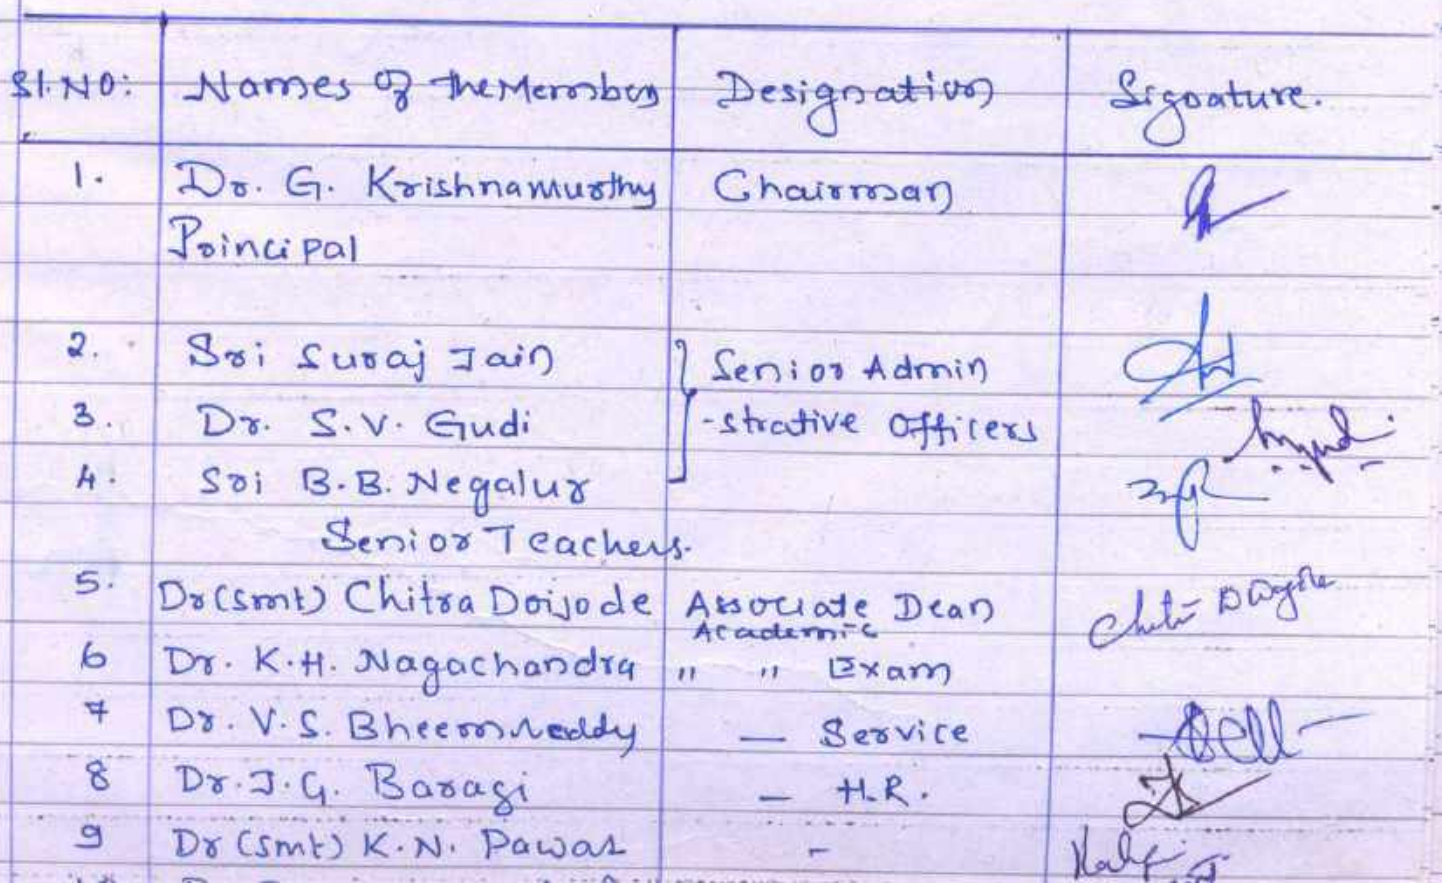 Sl.NO: Names of the Members Designation Signature.
1. Dr. G. Krishnamurthy Chairman
Principal
2. Sri Suraj Jain Senior Admin
3. Dr. S.V. Gudi -strative Officers
4. Sri B.B. Negalur
Senior Teachers.
5. Dr(Smt) Chitra Doijode Associate Dean
Academic
6 Dr. K.H. Nagachandra " " Exam
7 Dr. V.S. Bheemreddy — Service
8 Dr. J.G. Baragi — H.R.
9 Dr (Smt) K.N. Pawar -